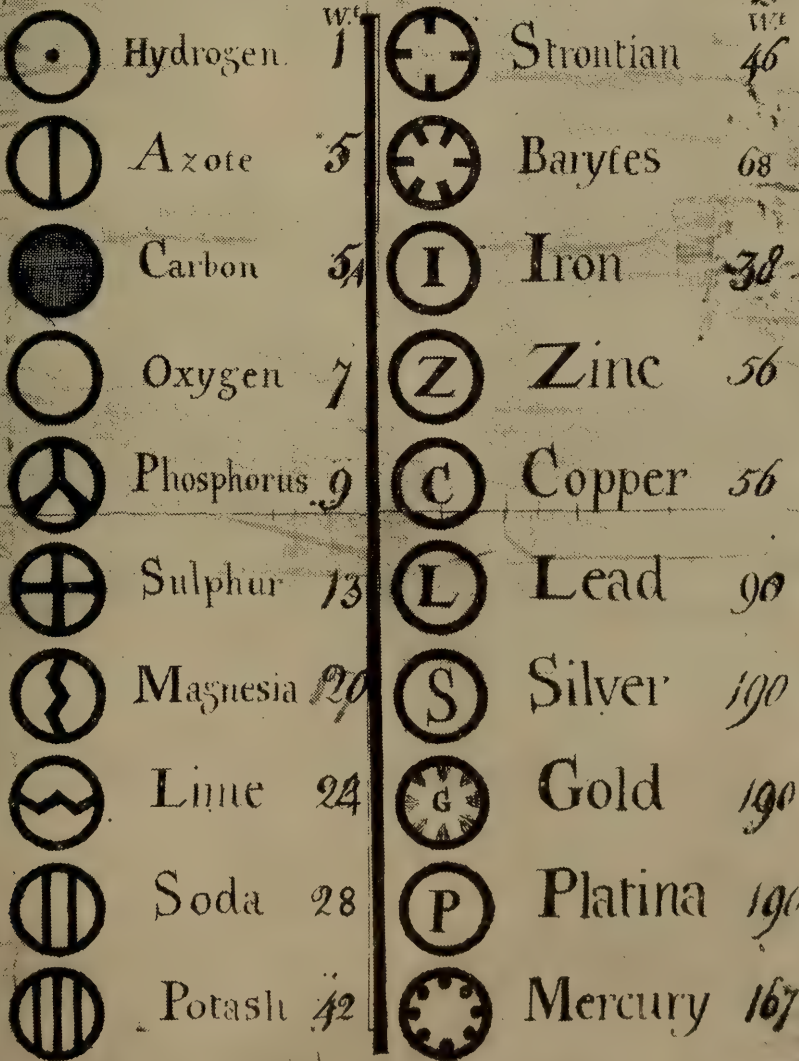 Wt
Hydrogen. 1
Azote 5
Carbon 5
Oxygen 7
Phosphorus 9
Sulphur 13
Magnesia 20
Lime 24
Soda 28
Potash 42
Wt
Strontian 46
Barytes 68
I Iron 38
Z Zinc 56
C Copper 56
L Lead 90
S Silver 190
G Gold 190
P Platina 190
Mercury 167